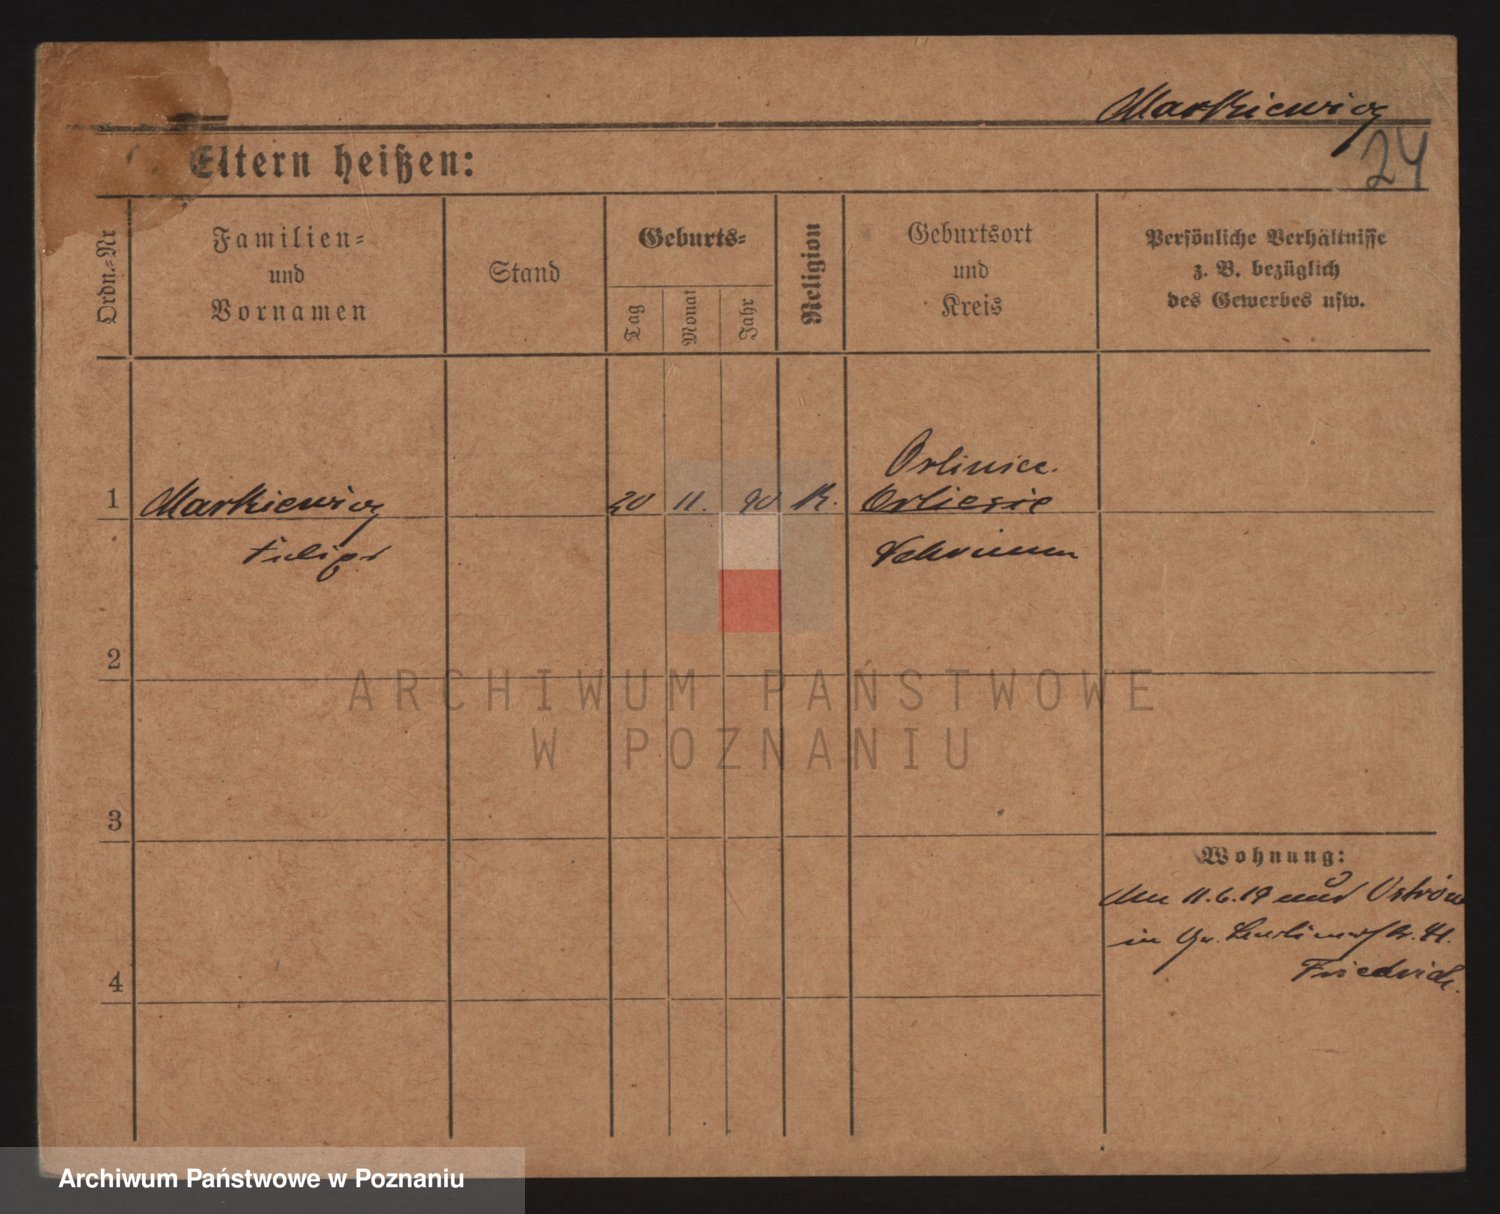 Markiewicz
24
Eltern heißen:
Ordn.-Nr
Familien-
und
Vornamen
Stand
Geburts-
Tag
Monat
Jahr
Religion
Geburtsort
und
Kreis
Persönliche Verhältnisse
z. B. bezüglich
des Gewerbes usw.
1
Markiewicz
20
11.
90
K.
Schrimm
2
ARCHIWUM PAŃSTWOWE
W POZNANIU
3
Wohnung:
11.6.19
in
Friedrich.
4
Archiwum Państwowe w Poznaniu